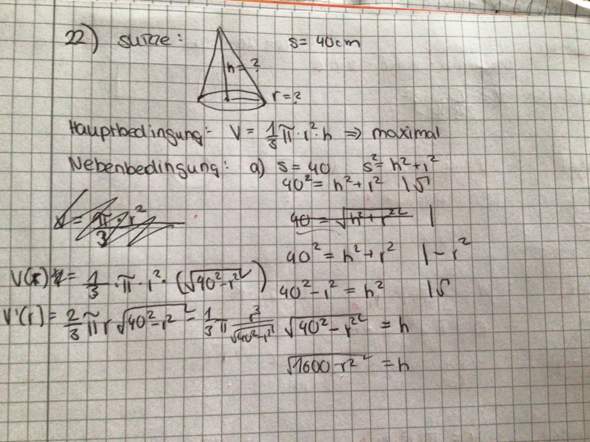 22) Skizze: s = 40cm
h = ?
r = ?
Hauptbedingung: V = 1/3 π · r² · h ⇒ maximal
Nebenbedingung: a) s = 40 s² = h² + r²
40² = h² + r² | √
40 = √(h² + r²) |
V = π/3 · r²
40² = h² + r² | - r²
V(r) = 1/3 · π · r² · (√(40² - r²)) 40² - r² = h² | √
V'(r) = 2/3 π r √(40² - r²) = 1/3 π r³/√(40² - r²) √(40² - r²) = h
√(1600 - r²) = h